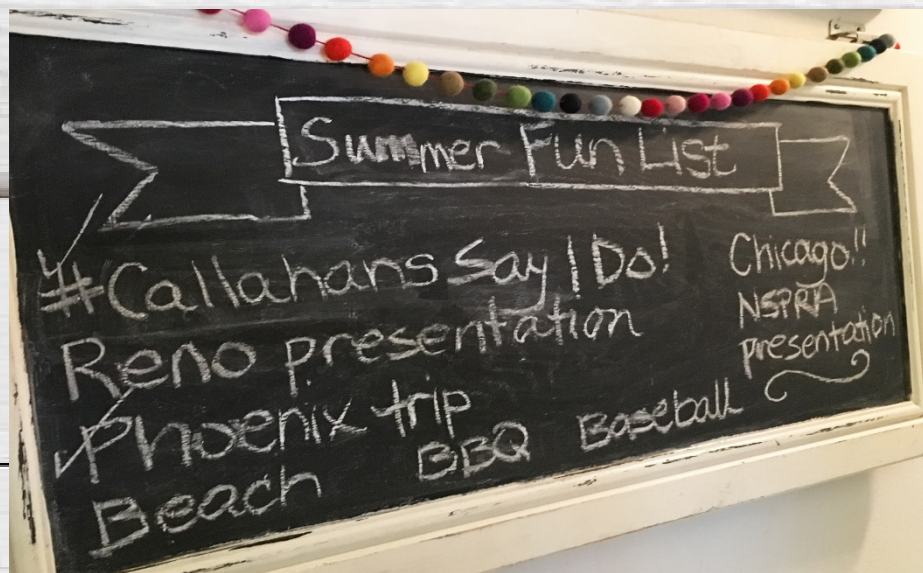 Summer Fun List
#Callahans Say I Do!
Reno presentation
Phoenix trip
Beach
BBQ
Baseball
Chicago!!
NSPRA
presentation